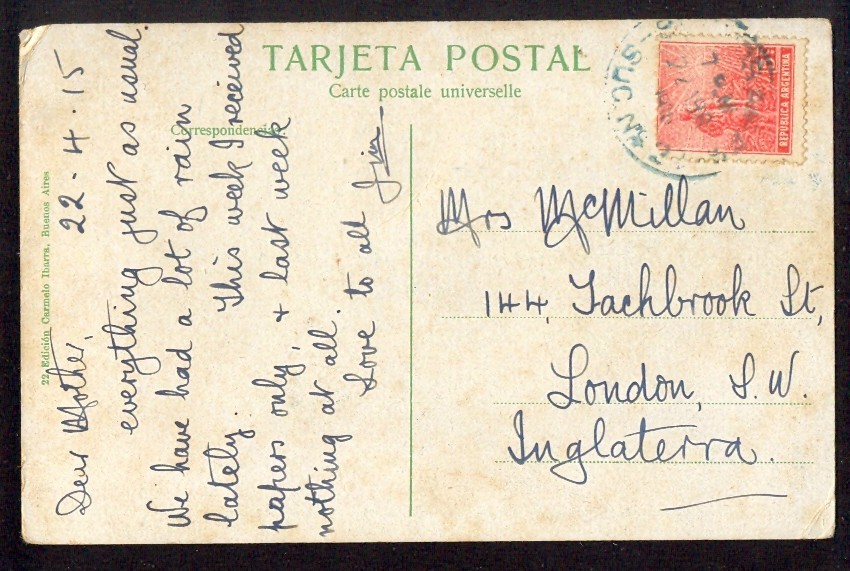 TARJETA POSTAL
Carte postale universelle
Correspondencia
22 Edición Carmelo Ibarra, Buenos Aires
22-4-15
Dear Mother,
everything just as usual.
We have had a lot of rain
lately. This week I received
papers only, & last week
nothing at all.
Love to all Jim
REPUBLICA ARGENTINA
Mrs McMillan
144, Tachbrook St,
London, S.W.
Inglaterra.